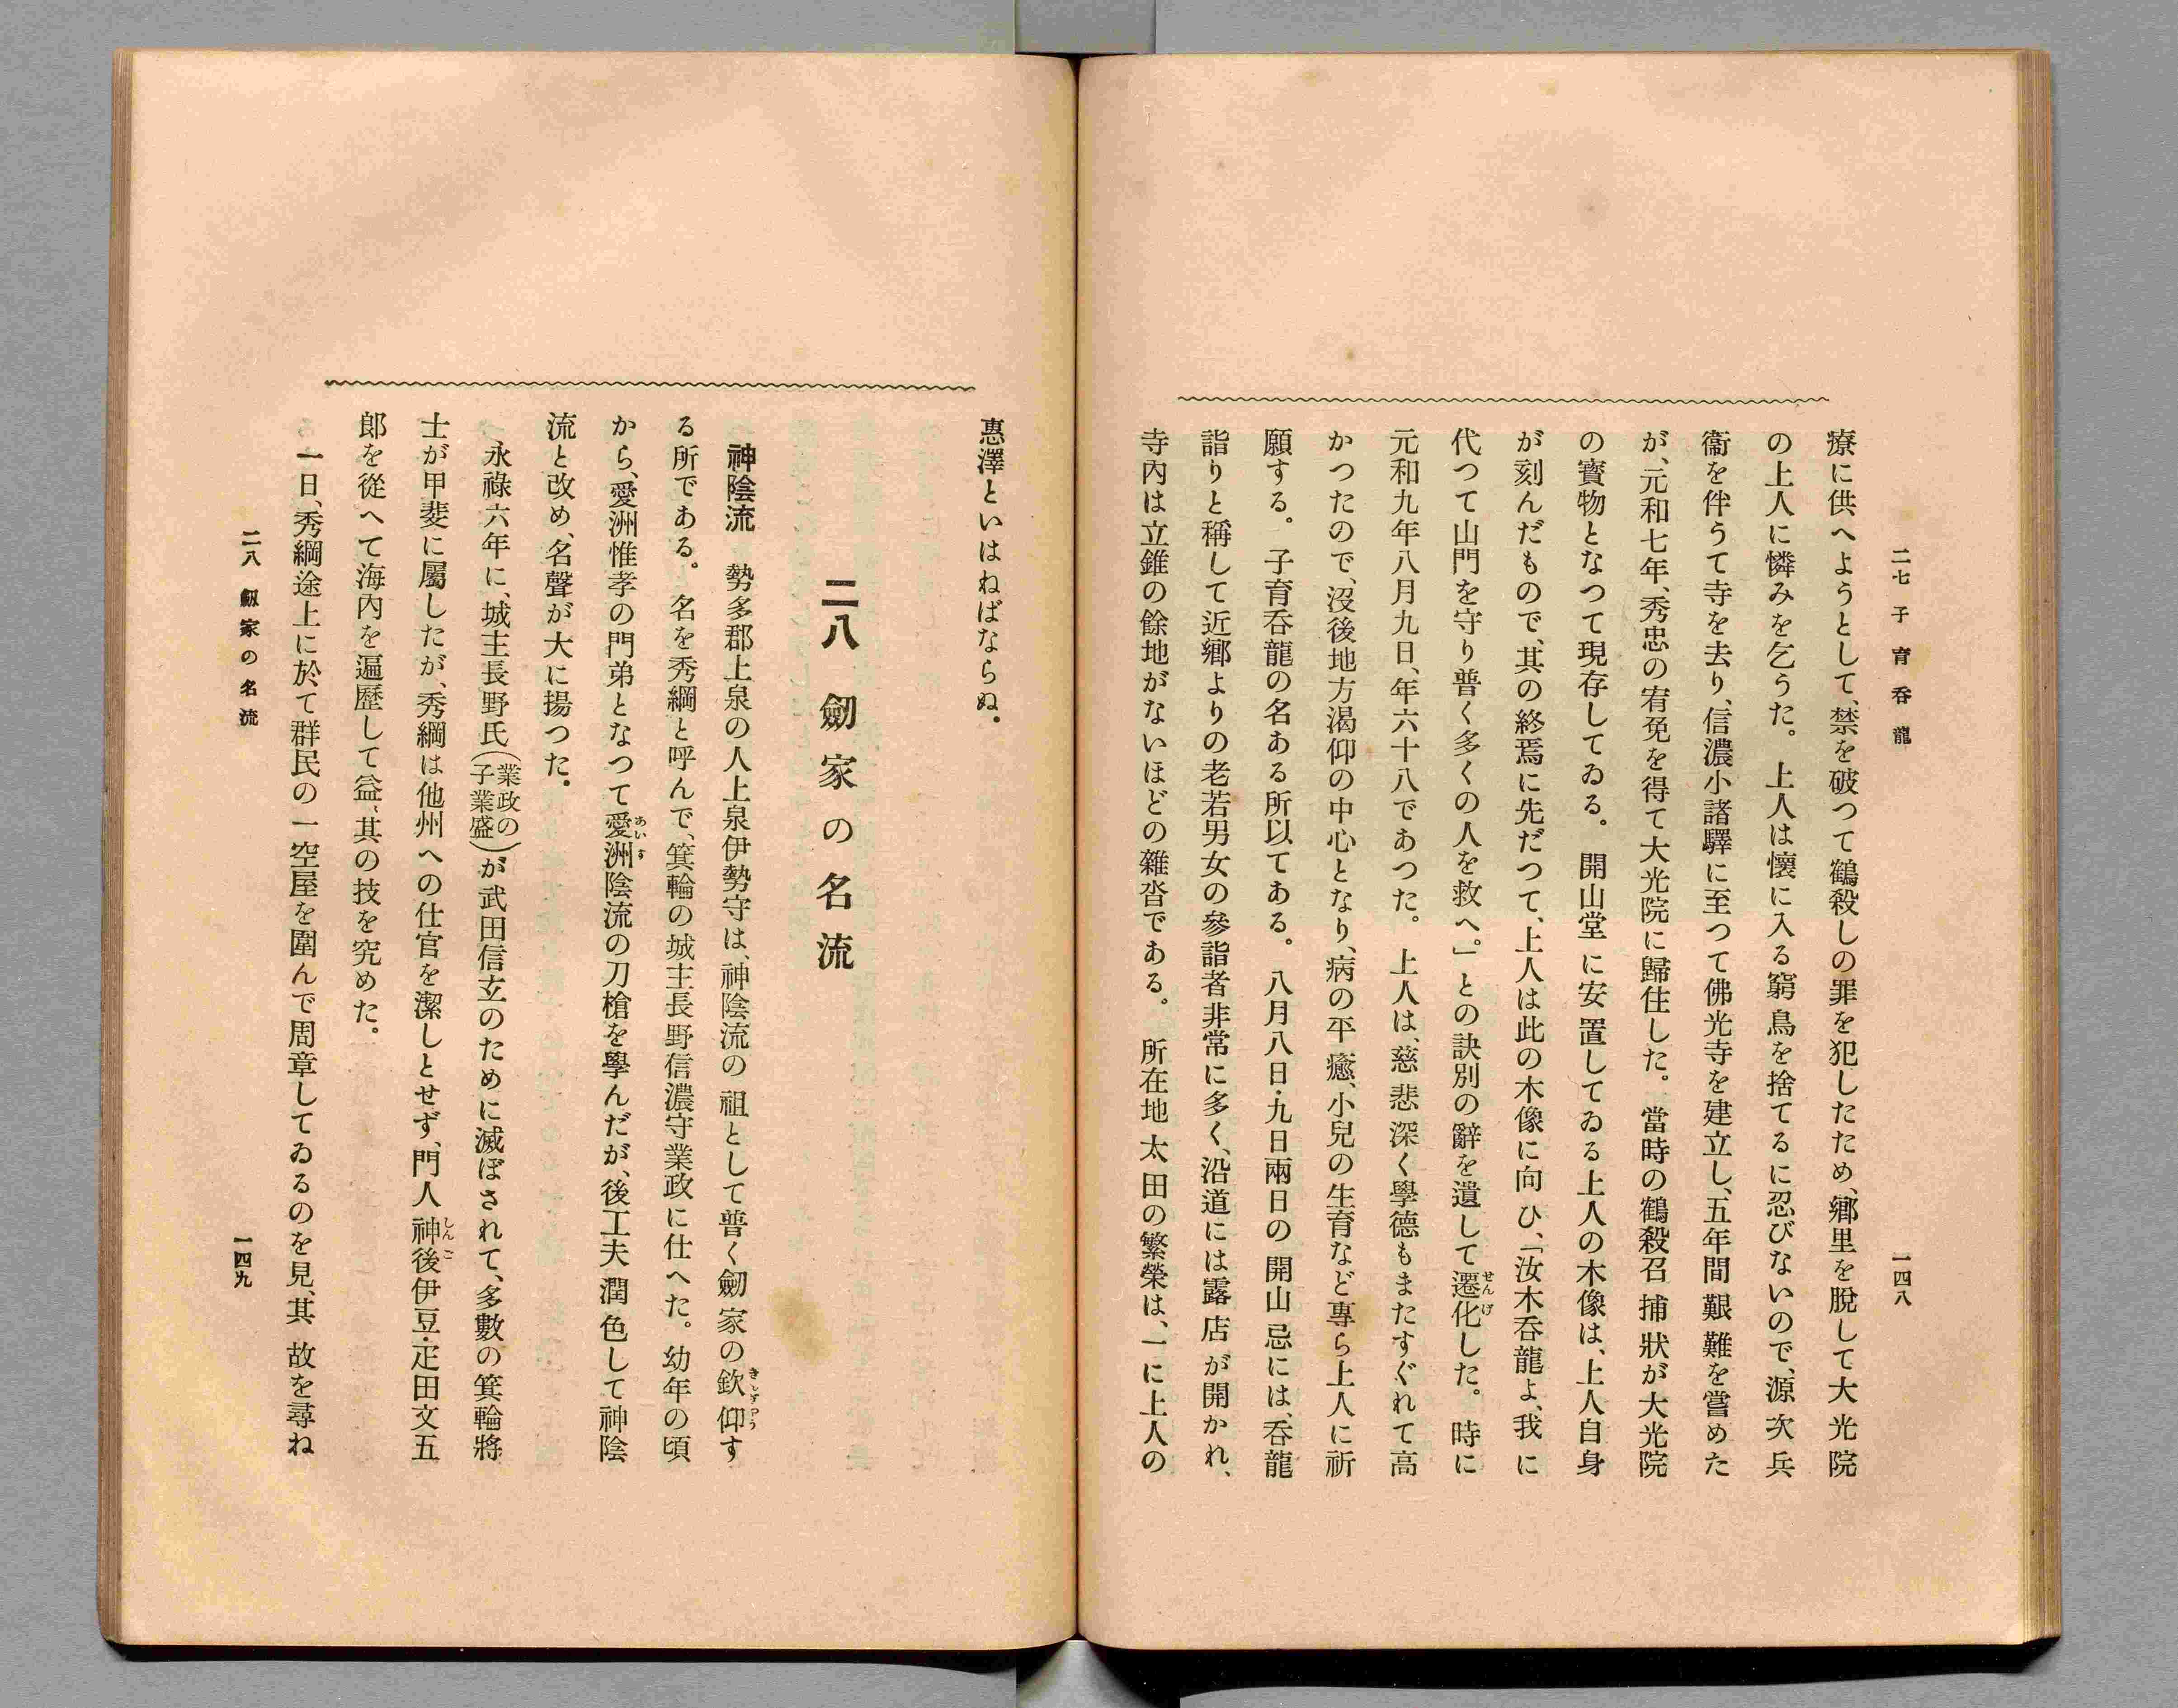 二七 子育呑龍
一四八
療に供へようとして、禁を破つて鶴殺しの罪を犯したため、鄕里を脱して大光院
の上人に憐みを乞うた。上人は懷に入る窮鳥を捨てるに忍びないので、源次兵
衞を伴うて寺を去り、信濃小諸驛に至つて佛光寺を建立し、五年間艱難を嘗めた
が、元和七年、秀忠の宥免を得て大光院に歸住した。當時の鶴殺召捕狀が大光院
の寶物となつて現存してゐる。開山堂に安置してゐる上人の木像は、上人自身
が刻んだもので、其の終焉に先だつて、上人は此の木像に向ひ、「汝木呑龍よ、我に
代つて山門を守り普く多くの人を救へ。」との訣別の辭を遺して遷化した。時に
せんげ
元和九年八月九日、年六十八であつた。上人は、慈悲深く學德もまたすぐれて高
かつたので、沒後地方渴仰の中心となり、病の平癒、小兒の生育など專ら上人に祈
願する。子育呑龍の名ある所以てある。八月八日・九日兩日の開山忌には、呑龍
詣りと稱して近鄕よりの老若男女の參詣者非常に多く、沿道には露店が開かれ、
寺內は立錐の餘地がないほどの雜沓である。所在地太田の繁榮は、一に上人の
惠澤といはねばならぬ。
二八 劒家の名流
神陰流 勢多郡上泉の人上泉伊勢守は、神陰流の祖として普く劒家の欽仰す
きんぎやう
る所である。名を秀綱と呼んで、箕輪の城主長野信濃守業政に仕へた。幼年の頃
から、愛洲惟孝の門弟となつて愛洲陰流の刀槍を學んだが、後工夫潤色して神陰
あいす
流と改め、名聲が大に揚つた。
永祿六年に、城主長野氏(業政の子業盛)が武田信玄のために滅ぼされて、多數の箕輪將
士が甲斐に屬したが、秀綱は他州への仕官を潔しとせず、門人神後伊豆・疋田文五
しんご
郞を從へて海內を遍歷して益〻其の技を究めた。
一日、秀綱途上に於て群民の一空屋を圍んで周章してゐるのを見、其故を尋ね
二八 劒家の名流
一四九